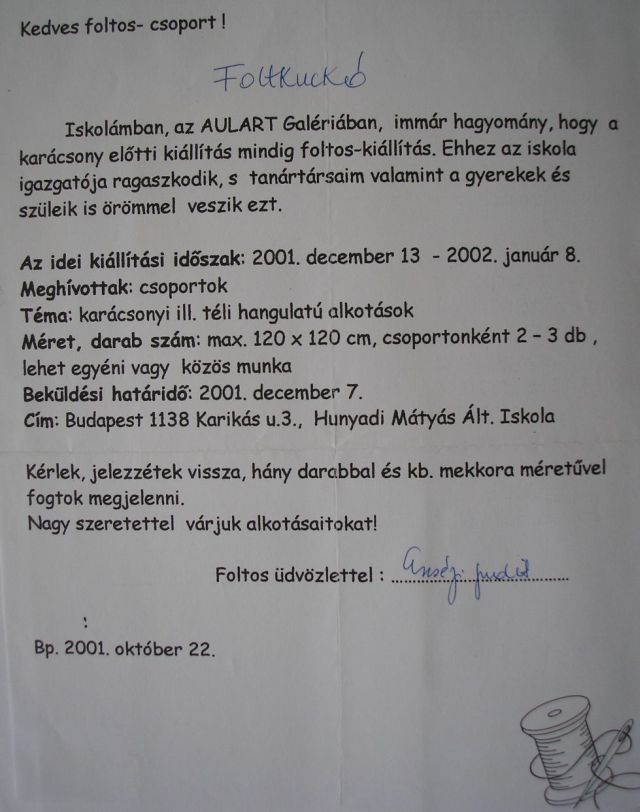 Kedves foltos- csoport !
Foltkuckó
Iskolámban, az AULART Galériában, immár hagyomány, hogy a
karácsony előtti kiállítás mindig foltos-kiállítás. Ehhez az iskola
igazgatója ragaszkodik, s tanártársaim valamint a gyerekek és
szüleik is örömmel veszik ezt.
Az idei kiállítási időszak: 2001. december 13 - 2002. január 8.
Meghívottak: csoportok
Téma: karácsonyi ill. téli hangulatú alkotások
Méret, darab szám: max. 120 x 120 cm, csoportonként 2 - 3 db ,
lehet egyéni vagy közös munka
Beküldési határidő: 2001. december 7.
Cím: Budapest 1138 Karikás u.3., Hunyadi Mátyás Ált. Iskola
Kérlek, jelezzétek vissza, hány darabbal és kb. mekkora méretűvel
fogtok megjelenni.
Nagy szeretettel várjuk alkotásaitokat!
Foltos üdvözlettel : Judit
:
Bp. 2001. október 22.